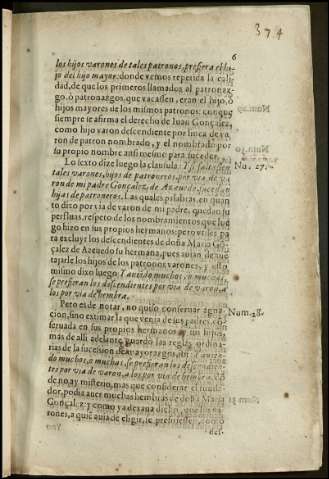 374
6
los hijos varones de tales patronos, prefiera el hi-
jo del hijo mayor: donde vemos repetida la cali-
dad, de que los primeros llamados al patronaz-
go, ò patronazgos, que vacassen, eran el hijo, ò
hijos mayores de los mismos patronos: conque
siempre se afirma el derecho de Iuan Gonçalez,
como hijo varon descendiente por linea de va-
ron de patron nombrado, y el nombrado por
su propio nombre assimesmo para suceder.
Lo sexto dize luego la clausula: Y si faltassen
Nu. 27.
tales varones, hijos de patroneros, por via de va-
ron de mi padre Gonçalez, de Azeuedo, sucedan
hijas de patroneros. Las quales palabras, en quan-
to dixo por via de varon de mi padre, quedan su
perfluas, respeto de los nombramientos que lue
go hizo en sus propios hermanos: pero vtiles pa
ra excluyr los descendientes de doña Maria Gon
çalez de Azeuedo su hermana, pues
los hijos de los patronos varones, y
mismo dixo luego: Y auiendo muchos, ò muchas,
se prefieran los descendientes por via de varon, a
los por via de hembra.
Pero es de notar, no quiso conseruar agna-
Num. 28.
cion, sino estimar la que venia de sus padres,
seruada en sus propios hermanos,
mas de alli adelante guardò las reglas ordina-
rias de la sucession de mayorazgos, ibi: Y auien-
do muchos, ò muchas, se prefieran los descendien-
tes por via de varon, a los por via de hembra:
de no ay misterio, mas que considerar el funda-
dor, podia auer muchas hembras de doña Maria
Gonçalez: y como ya dexaua dicho, que los va-
rones, a quien auia de elegir, se prefiriessen, como
des-